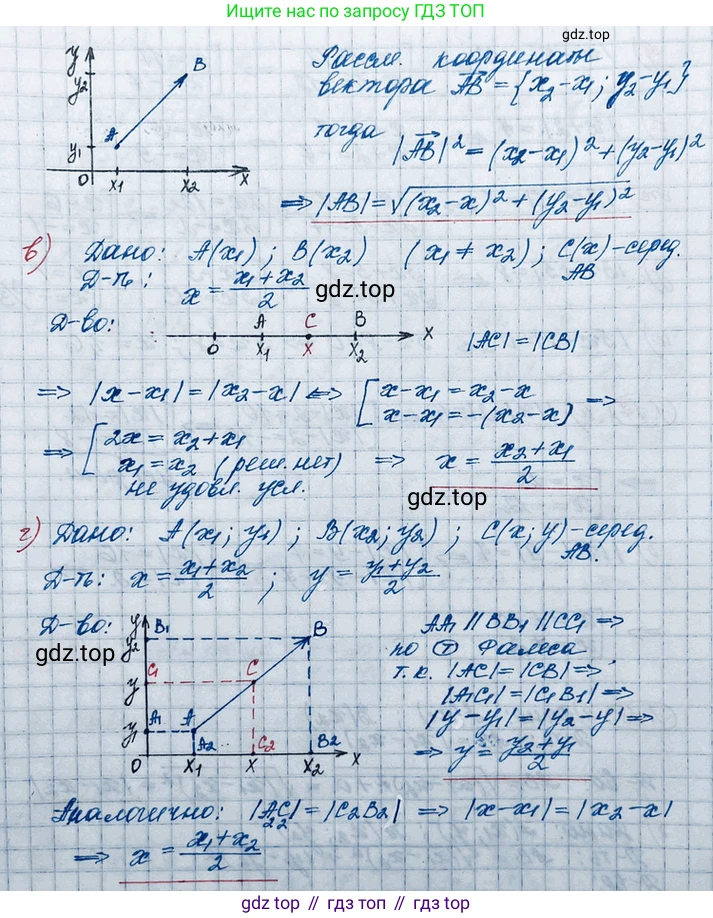 Ищите нас по запросу ГДЗ ТОП
gdz.top
y
y2
B
A
y1
0
x1
x2
x
Рассм. координаты
вектора AB = {x2-x1; y2-y1}
тогда
|AB|² = (x2-x1)² + (y2-y1)²
=> |AB| = √(x2-x)² + (y2-y1)²
в) Дано: A(x1); B(x2) (x1 ≠ x2); C(x)-серед. AB
Д-ть: x = (x1+x2)/2
gdz.top
Д-во:
A C B
0 x1 x x2 x
|AC| = |CB|
=> |x-x1| = |x2-x| <=> [x-x1 = x2-x
x-x1 = -(x2-x) =>
=> [2x = x2+x1
x1 = x2 (реш. нет) => x = (x2+x1)/2
не удовл. усл.
gdz.top
г) Дано: A(x1; y1); B(x2; y2); C(x; y)-серед. AB.
Д-ть: x = (x1+x2)/2; y = (y1+y2)/2
Д-во:
y B1 B
y2
gdz.top
C1 C
y
A1 A
y1
A2 C2 B2
0 x1 x x2 x
AA1 || BB1 || CC1 =>
по Т Фалеса
т.к. |AC| = |CB| =>
|A1C1| = |C1B1| =>
|y-y1| = |y2-y| =>
=> y = (y2+y1)/2
Аналогично: |A2C2| = |C2B2| => |x-x1| = |x2-x|
=> x = (x1+x2)/2
gdz.top // гдз топ // gdz.top